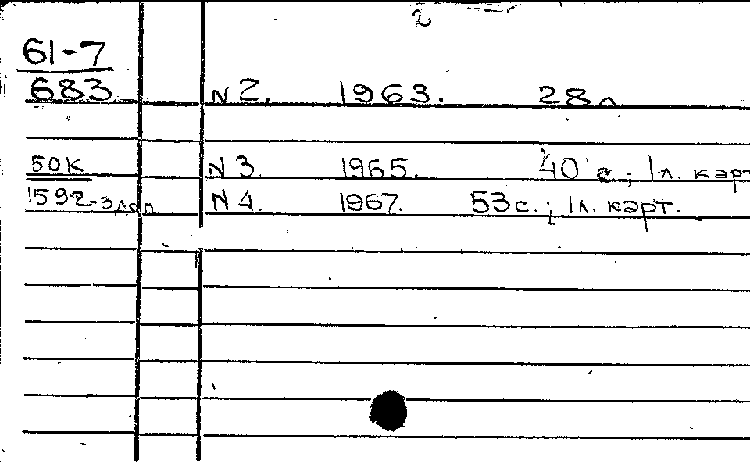 2
61-7
683 N 2. 1963. 28 л
50К N 3. 1965. 40 с.; 1 л. карт
1592-3 доп N 4. 1967. 53 с.; 1 л. карт.